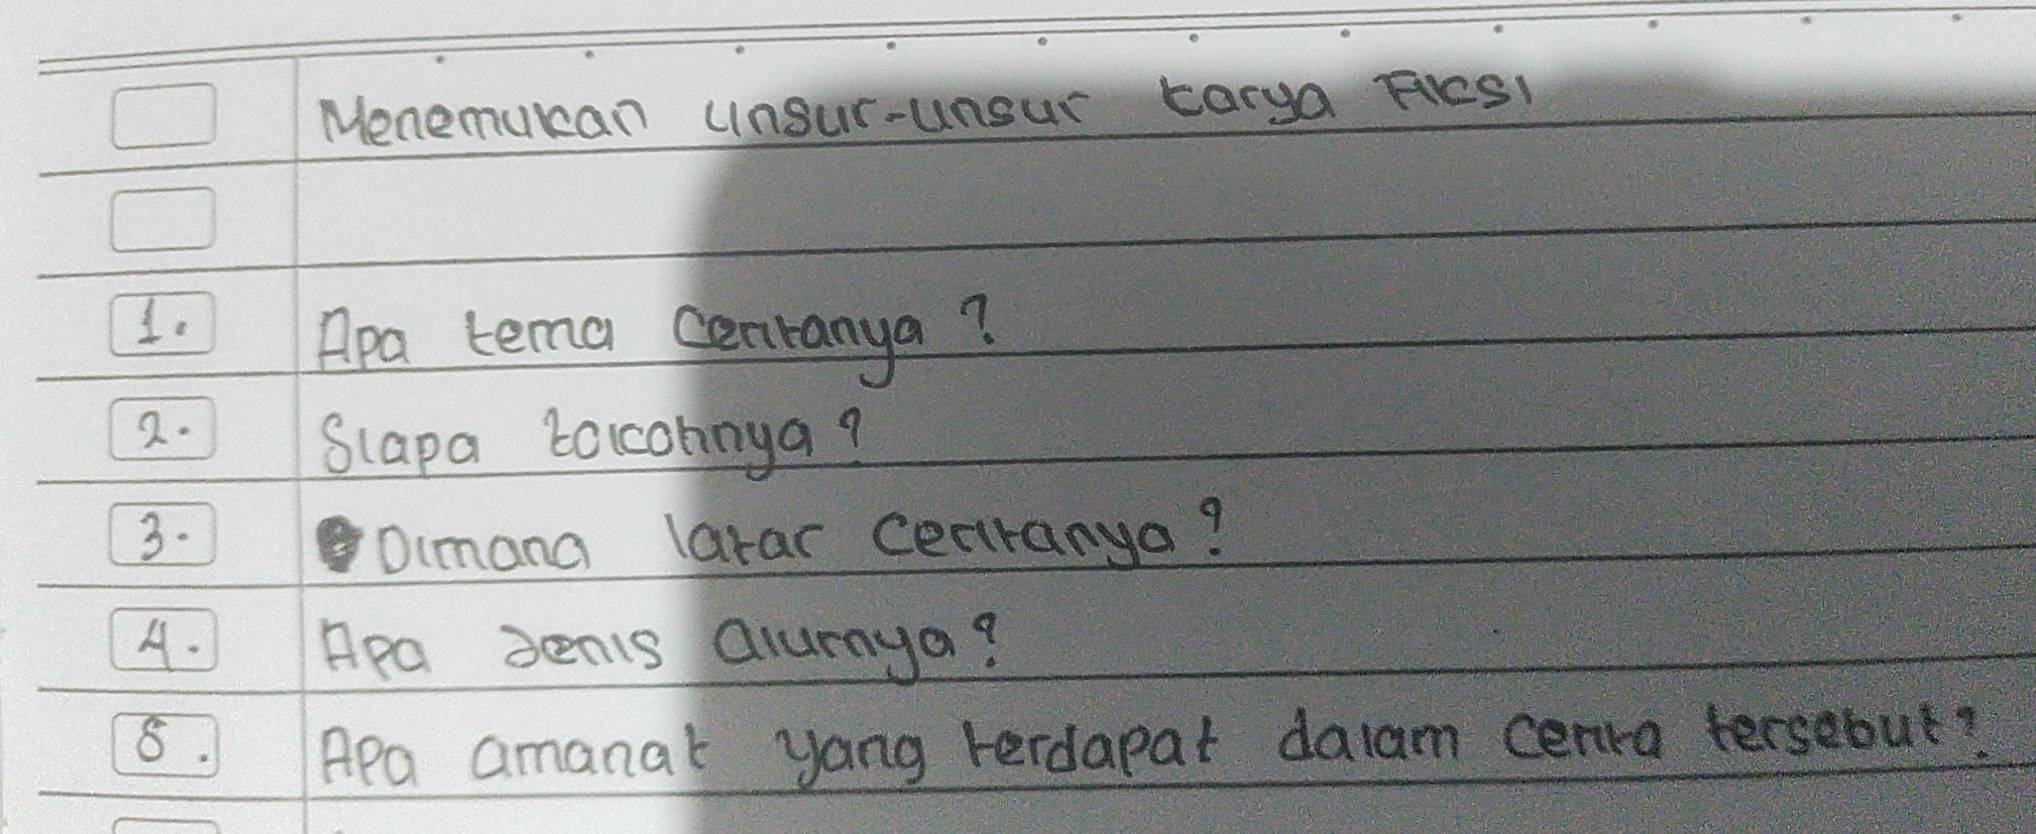 Menemukan unsur-unsur karya Fiksi
1. Apa tema ceritanya?
2. Siapa tokohnya?
3. Dimana latar ceritanya?
4. Apa Jenis alurnya?
5. Apa amanat yang terdapat dalam cerita tersebut?